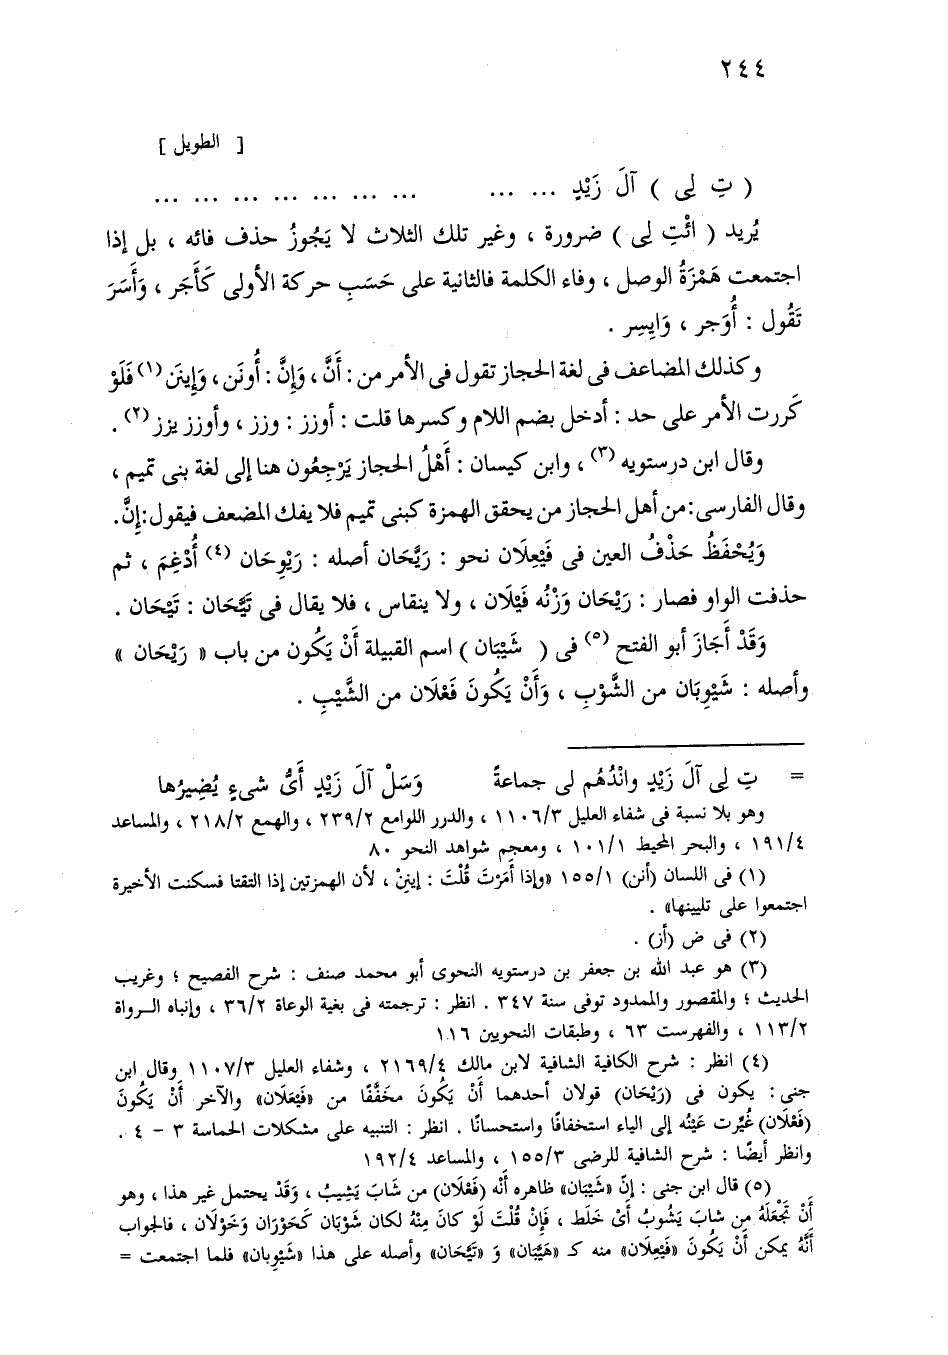 ٢٤٤
[ الطويل ]
( تِ لِى ) آلَ زَيْدٍ ... ... ... ... ... ... ... ... ...
يُريد ( ائْتِ لِى ) ضرورة ، وغير تلك الثلاث لا يَجُوزُ حذف فائه ، بل إذا
اجتمعت هَمْزَةُ الوصل ، وفاء الكلمة فالثانية على حَسَبِ حركة الأولى كَأَجَر ، وَأَسَرَ
تَقُول : أُوَجر ، وَايسِر .
وكذلك المضاعف فى لغة الحجاز تقول فى الأمر من : أَنَّ ، وَإِنَّ : أُونَن ، وَإِينَن (١) فَلَوْ
كَررت الأمر على حد : أدخل بضم اللام وكسرها قلت : أوزز : وزز ، وأوزز يزز (٢) .
وقال ابن درستويه (٣) ، وابن كيسان : أَهْلُ الحجاز يَرْجِعُون هنا إلى لغة بنى تميم ،
وقال الفارسى : من أهل الحجاز من يحقق الهمزة كبنى تميم فلا يفك المضعف فيقول : إِنَّ .
وَيُحْفَظُ حَذْفُ العين فى فَيْعِلَان نحو : رَيَّحَان أصله : رَيْوِحَان (٤) أُدْغِمَ ، ثم
حذفت الواو فصار : رَيْحَان وَزْنُه فَيْلَان ، ولا ينقاس ، فلا يقال فى تَيَّحَان : تَيْحَان .
وَقَدْ أَجَازَ أبو الفتح (٥) فى ( شَيْبَان ) اسم القبيلة أَنْ يَكُون من باب « رَيْحَان »
وأصله : شَيْوِبَان من الشَّوْبِ ، وَأَنْ يَكُونَ فَعْلَان من الشَّيْبِ .
= تِ لِى آلَ زَيْدٍ وانْدُهُم لى جماعةً وَسَلْ آلَ زَيْدٍ أَىُّ شىءٍ يُضِيرُها
وهو بلا نسبة فى شفاء العليل ١١٠٦/٣ ، والدرر اللوامع ٢٣٩/٢ ، والهمع ٢١٨/٢ ، والمساعد
١٩١/٤ ، والبحر المحيط ١٠١/١ ، ومعجم شواهد النحو ٨٠
(١) فى اللسان (أنن) ١٥٥/١ «وإذا أَمَرْتَ قُلْتَ : إينِنْ ، لأن الهمزتين إذا التقتا فسكنت الأخيرة
اجتمعوا على تليينها» .
(٢) فى ض (أز) .
(٣) هو عبد الله بن جعفر بن درستويه النحوى أبو محمد صنف : شرح الفصيح ؛ وغريب
الحديث ؛ والمقصور والممدود توفى سنة ٣٤٧ . انظر : ترجمته فى بغية الوعاة ٣٦/٢ ، وإنباه الـرواة
١١٣/٢ ، والفهرست ٦٣ ، وطبقات النحويين ١١٦
(٤) انظر : شرح الكافية الشافية لابن مالك ٢١٦٩/٤ ، وشفاء العليل ١١٠٧/٣ وقال ابن
جنى : يكون فى (رَيْحَان) قولان أحدهما أَنْ يَكُونَ مخفَّفًا من «فَيْعَلَان» والآخر أَنْ يَكُونَ
(فَعْلَان) غُيِّرت عَيْنُه إلى الياء استخفافًا واستحسانًا . انظر : التنبيه على مشكلات الحماسة ٣ - ٤ .
وانظر أيضًا : شرح الشافية للرضى ١٥٥/٣ ، والمساعد ١٩٢/٤
(٥) قال ابن جنى : إنّ «شَيْبَان» ظاهره أنه (فَعْلَان) من شَابَ يَشِيبُ ، وَقَدْ يحتمل غير هذا ، وهو
أَنْ تَجْعَلَهُ من شابَ يَشُوبُ أىْ خَلَط ، فَإِنْ قُلْتَ لَوْ كانَ مِنْهُ لكان شَوْبَان كَحَوْرَان وَخَوْلَان ، فالجواب
أَنَّهُ يمكن أَنْ يَكُونَ «فَيْعِلَان» منه كـ «هَيَّبَان» وَ «تَيَّحَان» وأصله على هذا «شَيْوِبان» فلما اجتمعت =